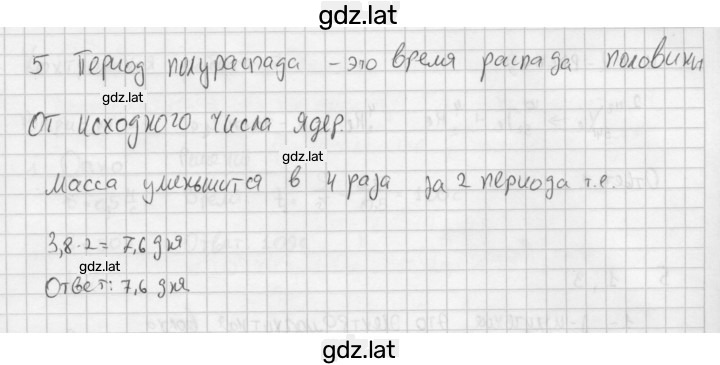 gdz.lat
5 Период полураспада - это время распада половины
gdz.lat
от исходного числа ядер.
gdz.lat
Масса уменьшится в 4 раза за 2 периода т.е.
3,8·2= 7,6 дня
gdz.lat
Ответ: 7,6 дня
gdz.lat
gdz.lat